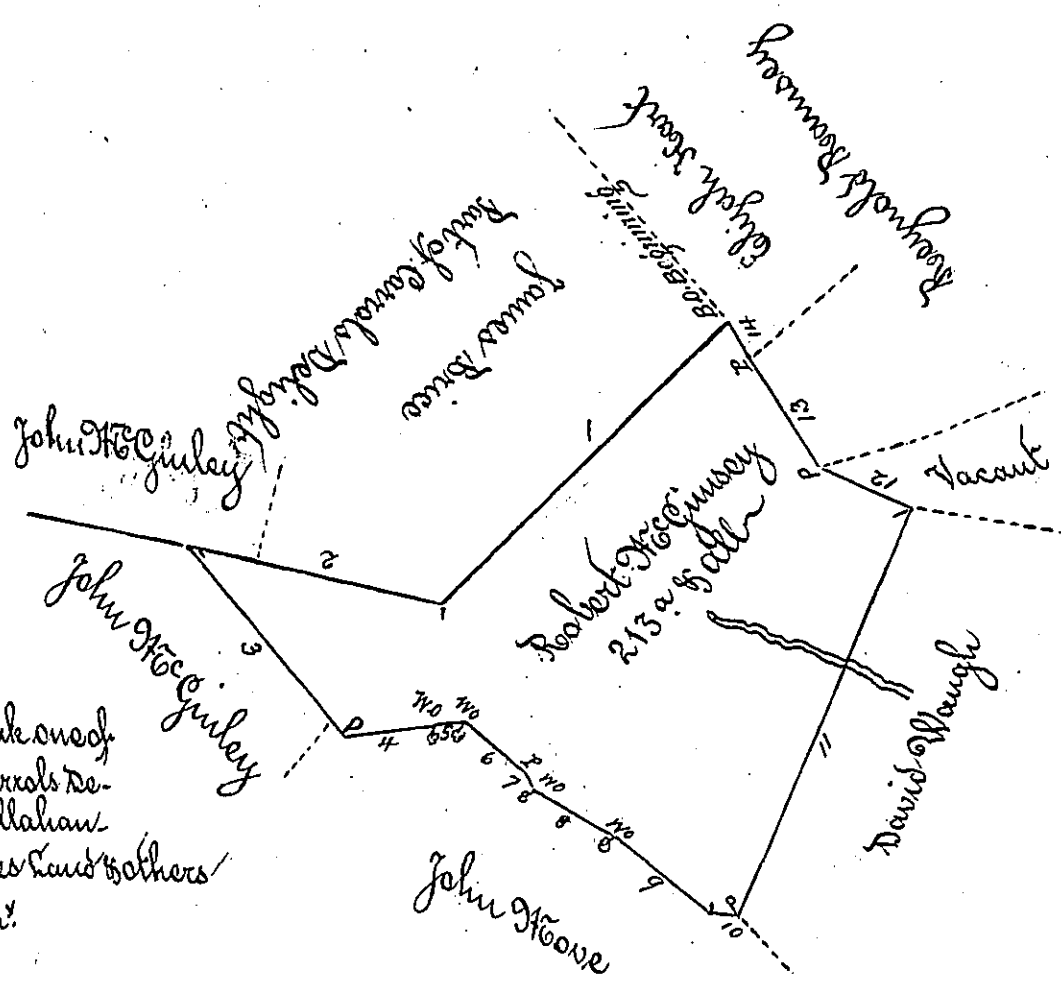 Reynolds Ramsey
Elijah Hart
Beginning
B.O.
Part of Carrols Delight
James Brice
John McGinley
John McGinley
Robert McGimsey
213 a. & all
Vacant
David Waugh
John Move
1
2
3
4
5
6
7
8
9
10
11
12
13
14
P
P
P
WO
WO
WO
WO
one of
Carrols De-
llahan
es Land & others